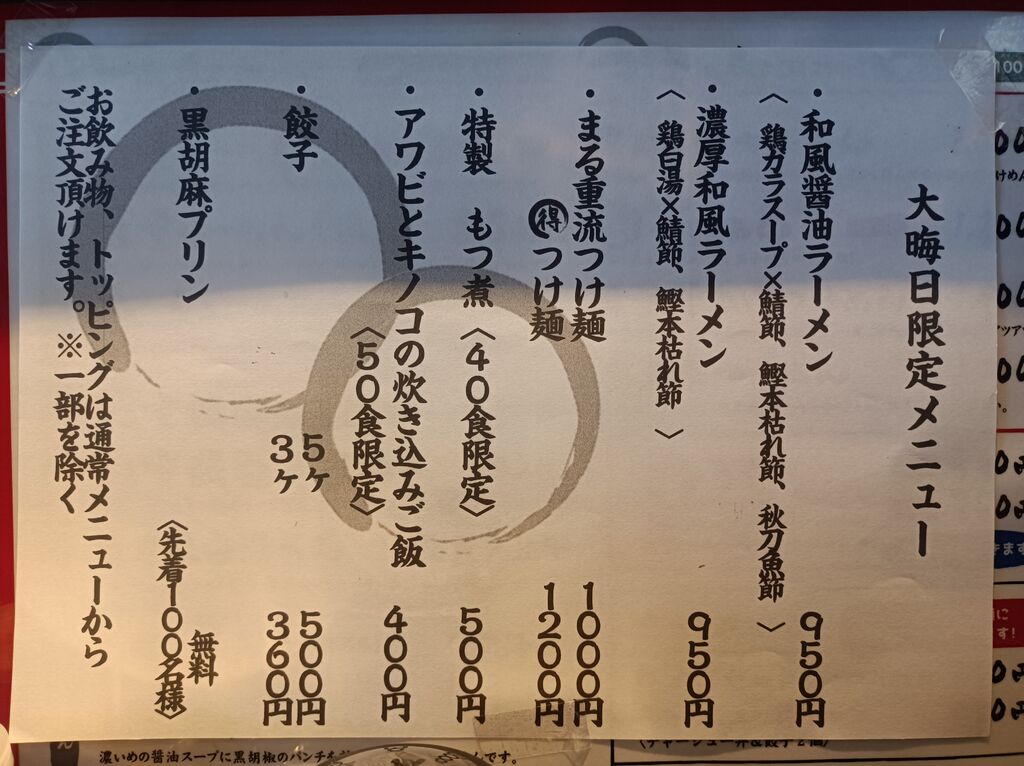 大晦日限定メニュー
・和風醤油ラーメン 950円
〈鶏ガラスープ×鯖節、鰹本枯れ節、秋刀魚節〉
・濃厚和風ラーメン 950円
〈鶏白湯×鯖節、鰹本枯れ節〉
・まる重流つけ麺 1000円
得つけ麺 1200円
・特製 もつ煮〈40食限定〉 500円
・アワビとキノコの炊き込みご飯 400円
〈50食限定〉
・餃子 5ヶ 500円
3ヶ 360円
・黒胡麻プリン 無料
〈先着100名様〉
お飲み物、トッピングは通常メニューから
ご注文頂けます。※一部を除く
濃いめの醤油スープに黒胡椒のパンチを
ん
です。
100
けめん